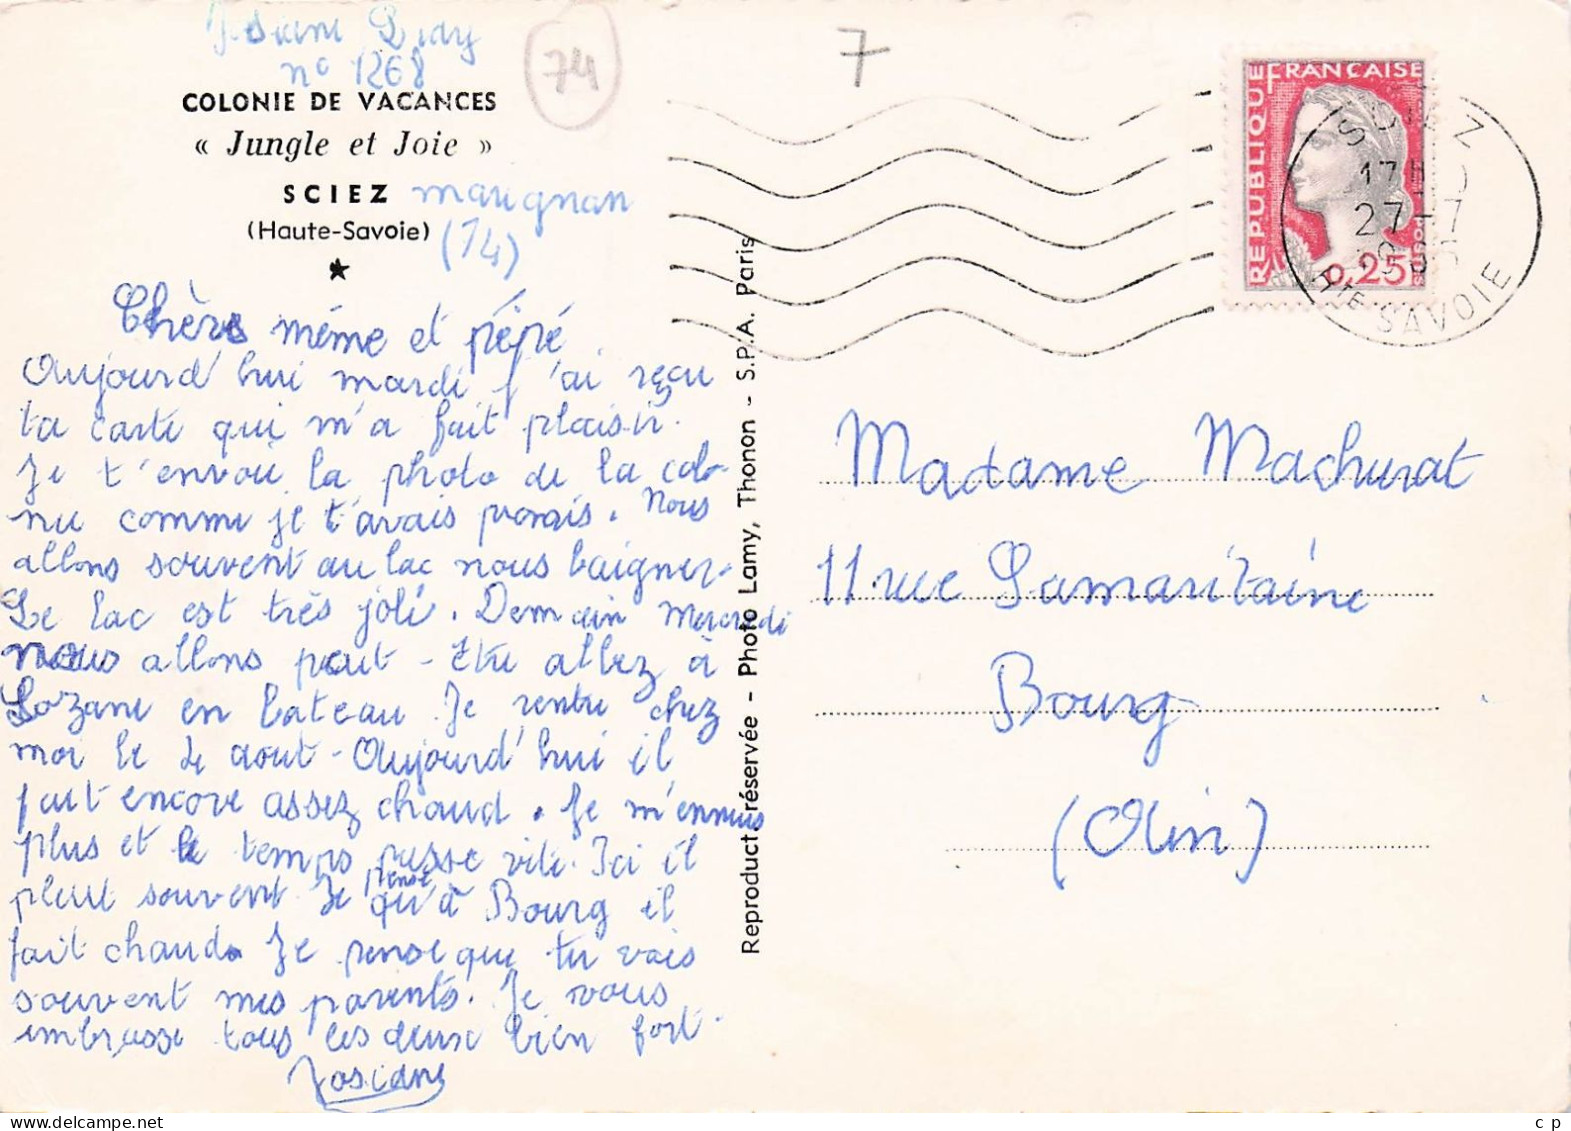 Josiane
n° 1268
74
7
COLONIE DE VACANCES
« Jungle et Joie »
SCIEZ marignan
(Haute-Savoie) (74)
Chères mémé et pépé
Aujourd'hui mardi j'ai reçu
ta carte qui m'a fait plaisir.
Je t'envoie la photo de la colo-
nie comme je t'avais promis. Nous
allons souvent au lac nous baigner.
Le lac est très joli. Demain Mercredi
nous allons peut-etre allez à
Lozane en bateau. Je rentre chez
moi le 4 aout - Aujourd'hui il
fait encore assez chaud. Je m'ennuis
plus et le temps passe vite. Ici il
pleut souvent Je pense qu'à Bourg il
fait chaud. Je pense que tu vois
souvent mes parents. Je vous
embrasse tous les deux bien fort.
Josiane
Reproduct. réservée - Photo Lamy, Thonon - S.P.A. Paris
REPUBLIQUE FRANÇAISE
0,25
POSTES
17 H
27-7
HTE SAVOIE
Madame Machurat
11 rue Samaritaine
Bourg
(Ain)
c p